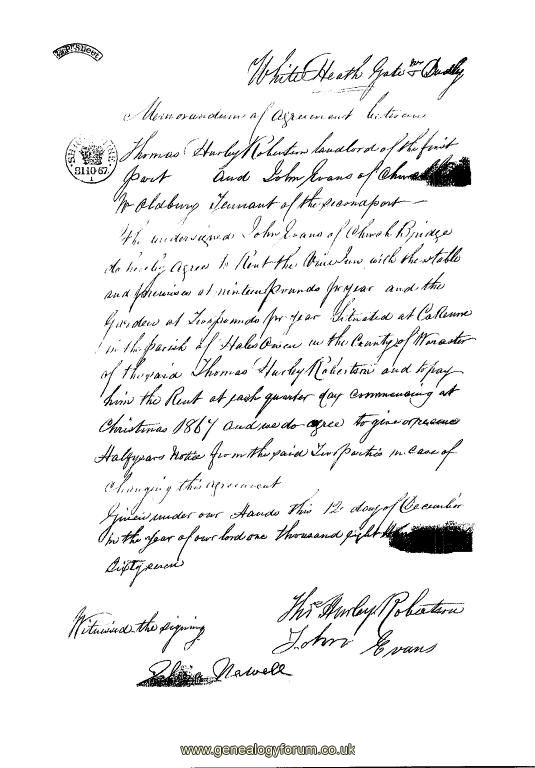 White Heath Gate Nr Dudley
Memorandum of Agreement between
Thomas Hurley Robertson landlord of the first
part and John Evans of Church
Nr Oldbury Tennant of the second part —
the undersigned John Evans of Church Bridge
do hereby agree to Rent the Vine Inn with the stable
and premises at ninteen pounds pr year and the
Garden at Two pounds pr year Situated at Cakemore
in the parish of Hales Owen in the County of Worcester
of the said Thomas Hurley Robertson and to pay
him the Rent at each quarter day commencing at
Christmas 1867 and we do agree to give or receive
Half years Notice from the said Two parties in case of
Changing this agreement
Given under our Hands this 12 day of December
in the year of our lord one thousand eight
Sixty seven
Thos Hurley Robertson
John Evans
Witnessed the signing
Newell
31·10·67
1
www.genealogyforum.co.uk